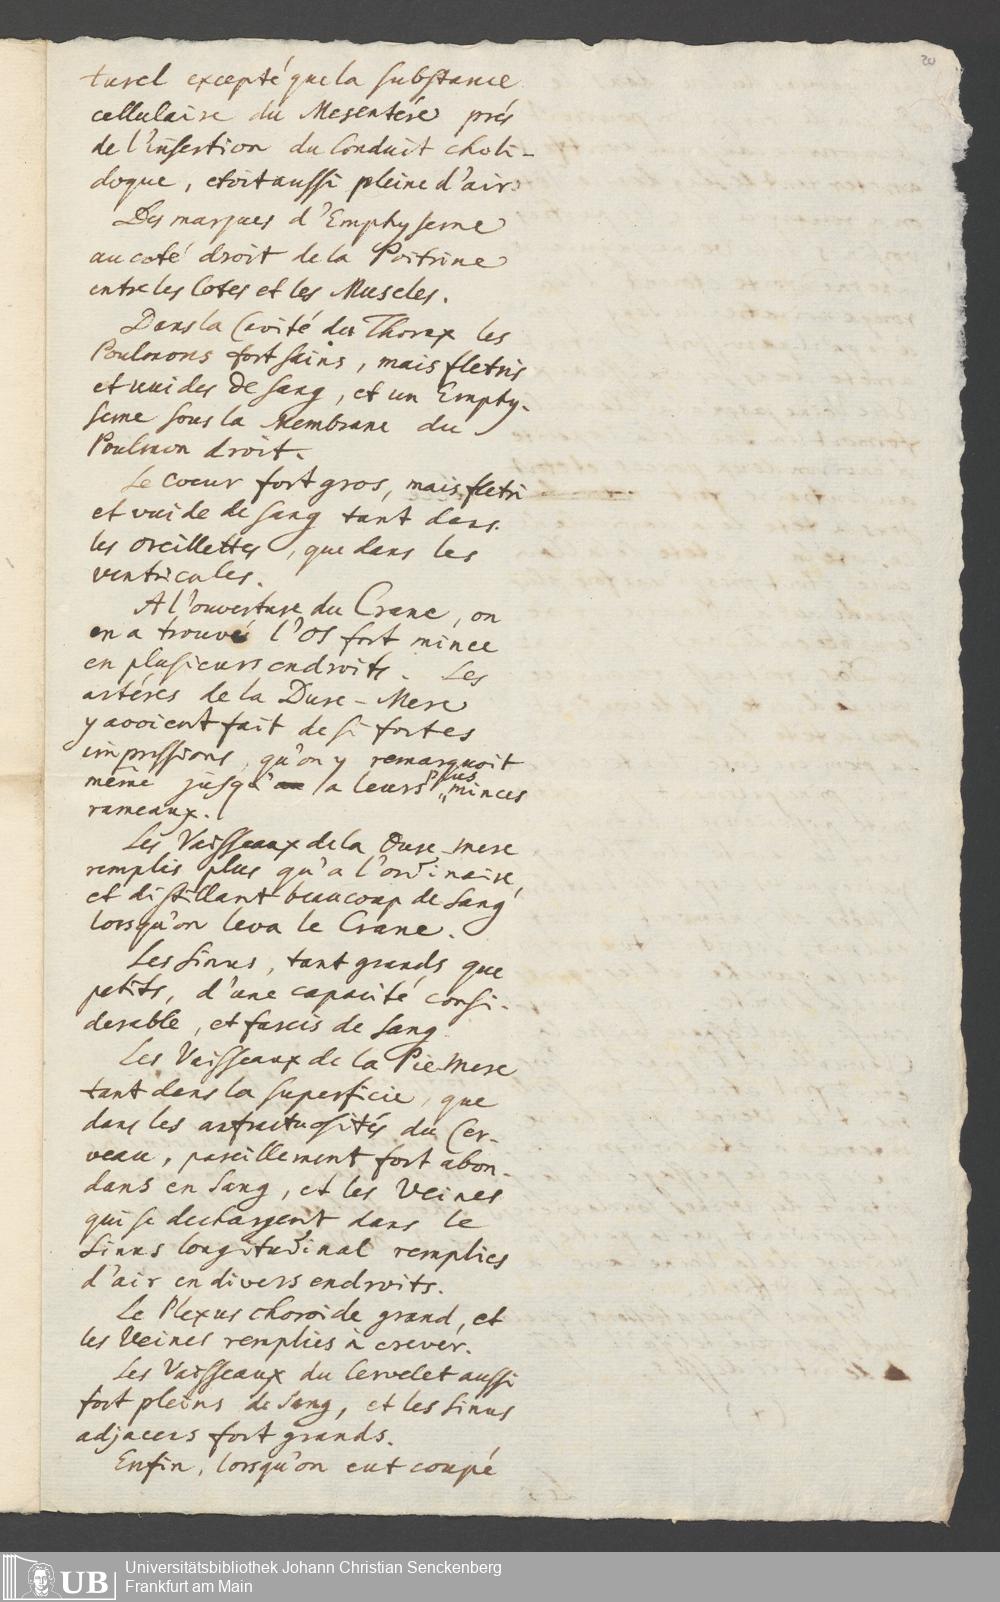 20
turel excepté que la substance
cellulaire du Mesentére prés
de l'insertion du Conduit choli-
doque, etoit aussi pleine d'air.
Des marques d'Emphyseme
au coté droit de la Poitrine
entre les Cotes et les Muscles.
Dans la Cavité du Thorax les
Poulmons fort sains, mais fletris
et vuides de sang, et un Emphy-
seme sous la Membrane du
Poulmon droit.
Le coeur fort gros, mais fletri
et vuide de sang tant dans
les oreillettes, que dans les
ventricules.
A l'ouverture du Crane, on
en a trouvé l'os fort mince
en plusieurs endroits. Les
artéres de la Dure-Mere
y avoient fait de si fortes
impressions, qu'on y remarquoit
même jusqu'a leurs plus minces
rameaux.
Les Vaisseaux de la Dure-mere
remplis plus qu'a l'ordinaire,
et distillant beaucoup de sang
lorsqu'on leva le Crane.
Les Sinus, tant grands que
petits, d'une capacité consi-
derable, et farcis de sang
Les Vaisseaux de la Pie-Mere
tant dans la superficie, que
dans les anfractuosités du Cer-
veau, pareillement fort abon-
dans en sang, et les Veines
qui se dechargent dans le
Sinus longitudinal remplies
d'air en divers endroits.
Le Plexus choroide grand, et
les Veines remplies à crever.
Les Vaisseaux du Cervelet aussi
fort pleins de sang, et les Sinus
adjacens fort grands.
Enfin, lorsqu'on eut coupé
UB
Universitätsbibliothek Johann Christian Senckenberg
Frankfurt am Main